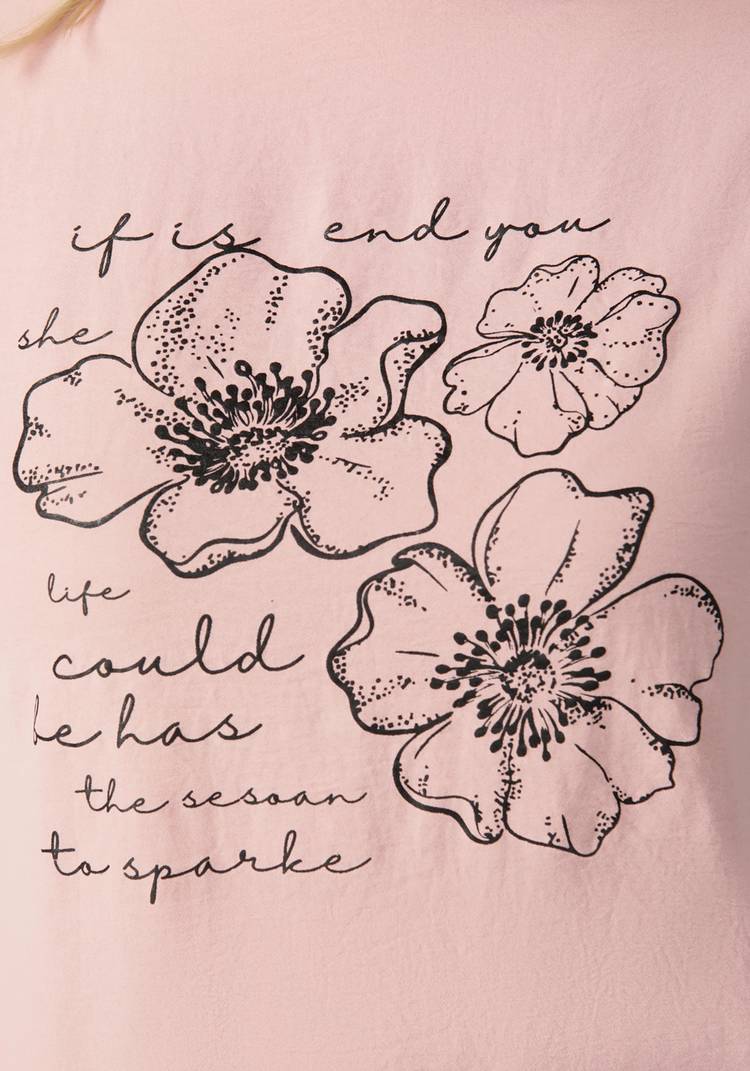 if is end you
she
life
could
be has
the sesoan
to sparke